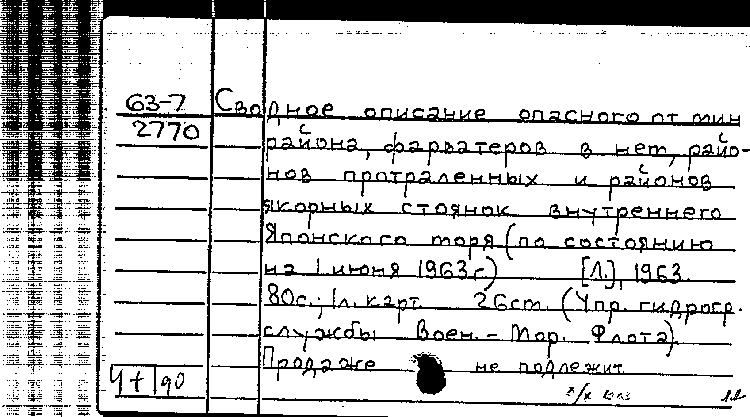 63-7 Сводное описание опасного от мин
2770 района, фарватеров в нем, райо-
нов протраленных и районов
якорных стоянок внутреннего
Японского моря (по состоянию
на 1 июня 1963г.) [Л.], 1963.
80с.; 1л. карт. 26cm. (Упр. гидрогр.
службы Воен. - Мор. Флота).
Продаже не подлежит